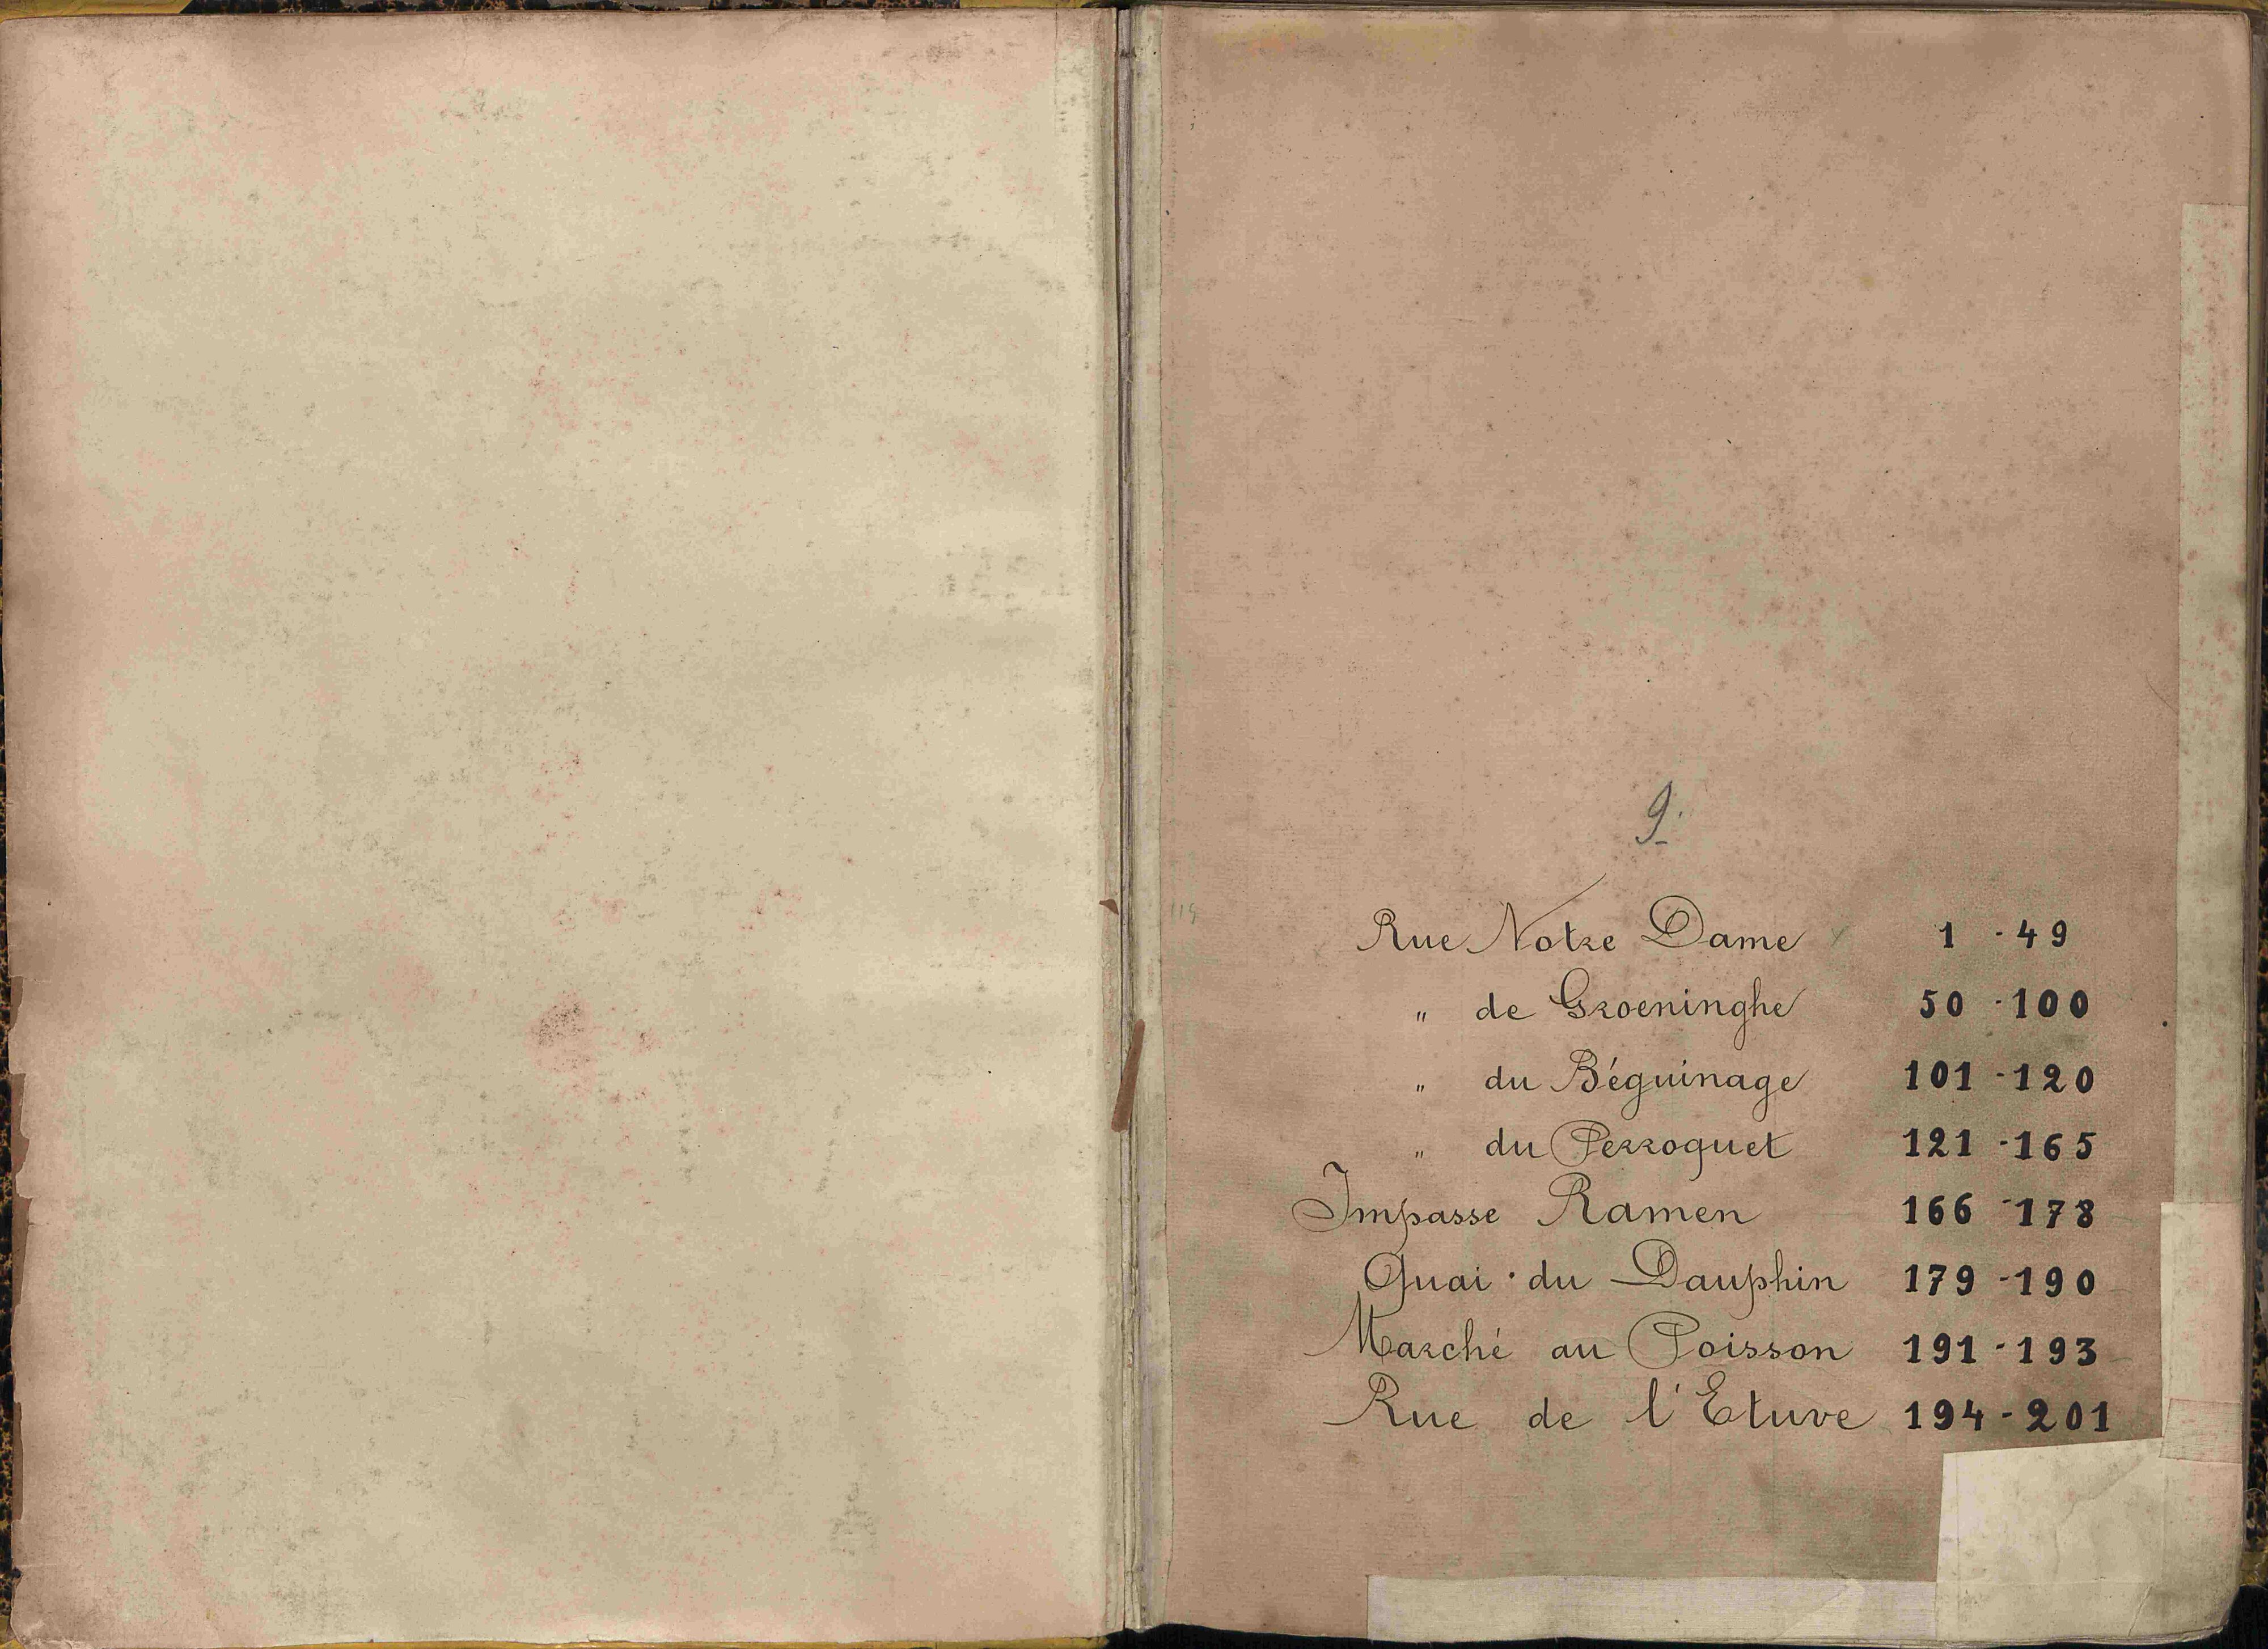 9.
Rue Notre Dame 1 - 49
" de Groeninghe 50 - 100
" du Béguinage 101 - 120
" du Perroquet 121 - 165
Impasse Ramen 166 - 178
Quai du Dauphin 179 - 190
Marché au Poisson 191 - 193
Rue de l'Etuve 194 - 201